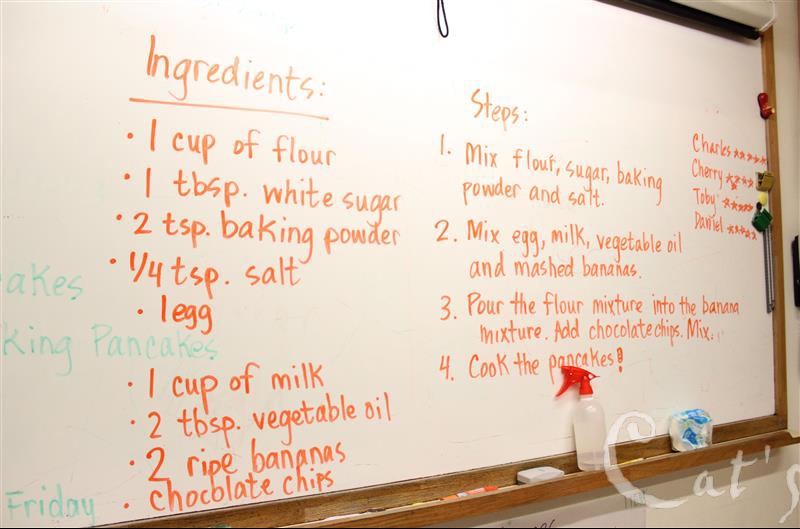 Ingredients:
• 1 cup of flour
• 1 tbsp. white sugar
• 2 tsp. baking powder
• 1/4 tsp. salt
• 1 egg
• 1 cup of milk
• 2 tbsp. vegetable oil
• 2 ripe bananas
• chocolate chips
Steps:
1. Mix flour, sugar, baking
powder and salt.
2. Mix egg, milk, vegetable oil
and mashed bananas.
3. Pour the flour mixture into the banana
mixture. Add chocolate chips. Mix.
4. Cook the pancakes!
Charles ★★★★★
Cherry ★★★★
Toby ★★★★★
Daniel ★★★★★
akes
king Pancakes
Friday
Cat's